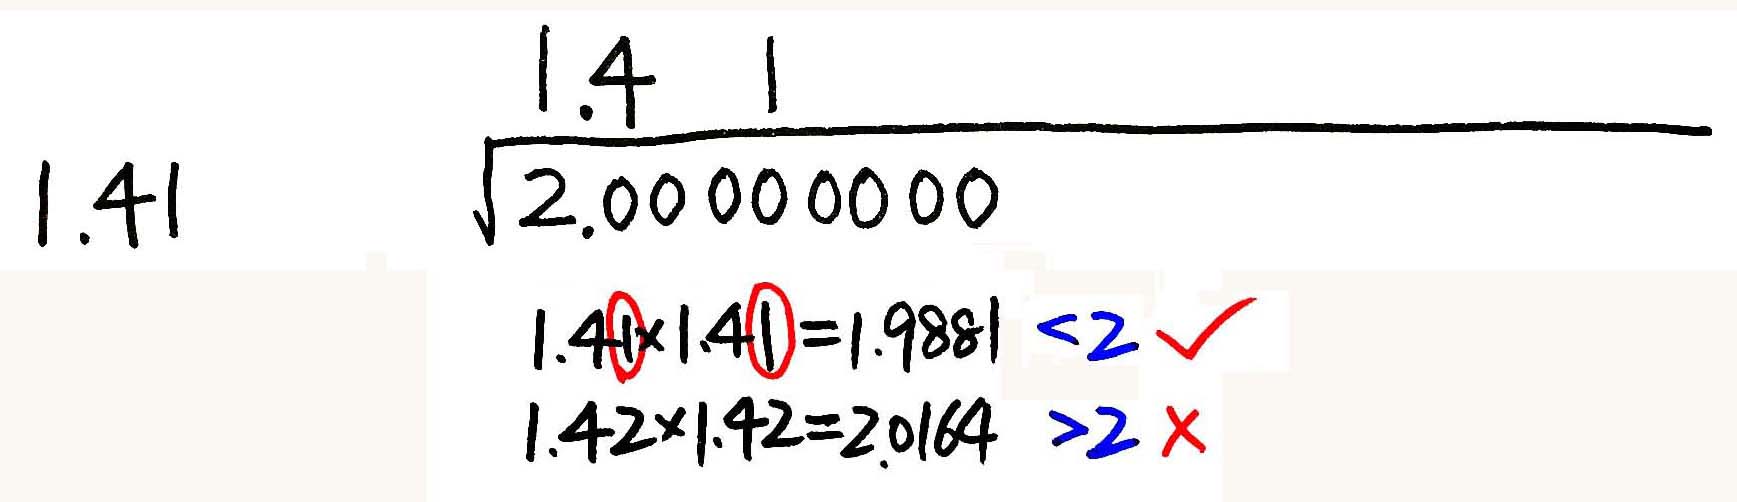 1.4 1
1.41 √2.00000000
1.41×1.41=1.9881 <2 ✓
1.42×1.42=2.0164 >2 ×